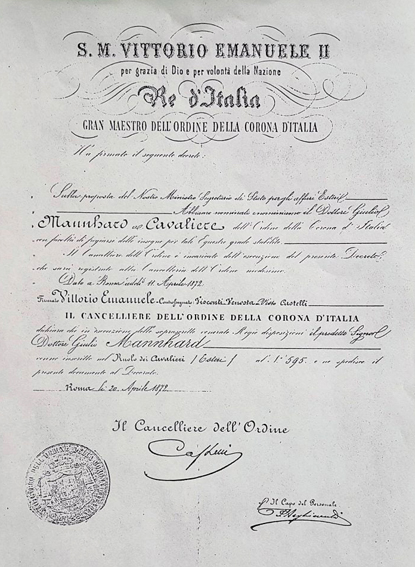 S. M. VITTORIO EMANUELE II
per grazia di Dio e per volontà della Nazione
Re d'Italia
GRAN MAESTRO DELL'ORDINE DELLA CORONA D'ITALIA
Ha firmato il seguente decreto:
Sulla proposta del Nostro Ministro Segretario di Stato per gli affari Esteri
Abbiamo nominato e nominiamo il Dottore Giulio
Mannhard a Cavaliere dell'Ordine della Corona d'Italia
con facoltà di fregiarsi delle insegne per tale Equestre grado stabilite
Il Cancelliere dell'Ordine è incaricato dell'esecuzione del presente Decreto
che sarà registrato alla Cancelleria dell'Ordine medesimo.
Dato a Roma addì 11 Aprile 1872
Firmato Vittorio Emanuele. Controfirmato Visconti Venosta. Visto Castelli
IL CANCELLIERE DELL'ORDINE DELLA CORONA D'ITALIA
dichiara che in esecuzione delle sopra scritte Regie disposizioni il predetto Signor
Dottore Giulio Mannhard
venne inscritto nel Ruolo dei Cavalieri (Esteri) al N.° 595. e ne spedisce il
presente documento al Decorato.
Roma li 20 Aprile 1872
Il Cancelliere dell'Ordine
Castelli
Il Capo del Personale